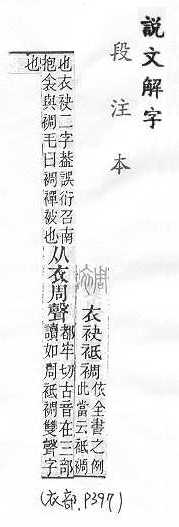 說文解字
段注本
裯 衣袂祗裯
依全書之例
此當云祗裯
也衣袂二字葢誤衍召南
抱衾與裯毛曰裯襌被也
从衣周聲
都牢切古音在三部
讀如周祗裯雙聲字
也
(衣部.P397)